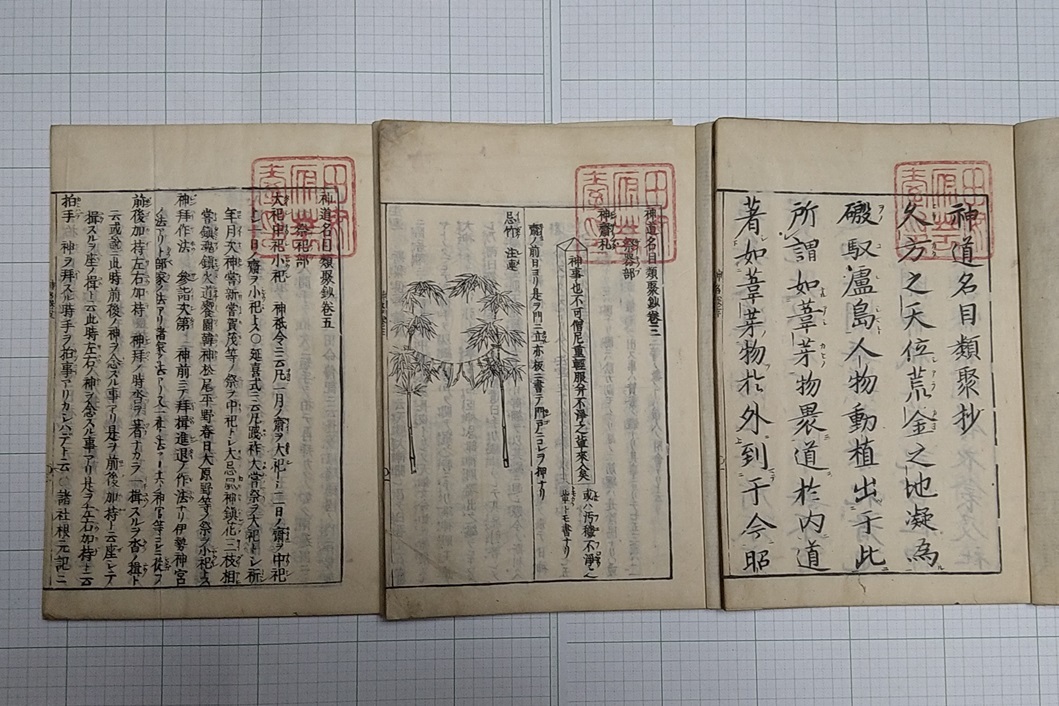 神道名目類聚抄
久方之天位荒金之地凝為
磤馭瀘島人物動植出于此
所謂如葦芽物畏道於内道
著如葦芽物於外到于今昭
神道名目類聚鈔巻三
祭器部
神齋札
神事也不可僧尼重軽服并不浄之輩来入矣
或ハ汚穢不浄之
輩トモ書ナリ
齋ノ前日ヨリ是ヲ門ニ立亦板ニ書テ門戸ニコレヲ押ナリ
忌竹 注連
神道名目類聚鈔巻五
祭祀部
大祀中祀小祀 神祇令ニ云凡一月ノ齋ヲ大祀トシ三日ノ齋ヲ中祀
トシ一日ノ齋ヲ小祀トス○延喜式ニ云凡践祚大嘗祭ヲ大祀トシ祈
年月次神嘗新嘗賀茂等ノ祭ヲ中祀トシ大忌風神鎮花三枝相
嘗鎮魂鎮火道饗園韓神松尾平野春日大原野等ノ祭ヲ小祀トス
神拝作法 参詣次第 神前ニテ拝揖進退ノ作法ナリ伊勢神宮
前後加持左右加持 神拝ノ時
云或説ニ此時前後ノ神ヲ念スル事アリ是ヲ前後加持ト云座シテ
揖スルヲ座ノ揖ト云此時左右ノ神ヲ念スル事アリ是ヲ左右加持ト云
拍手 神ヲ拝スル時手ヲ拍事アリカシハデト云 諸社根元記ニ